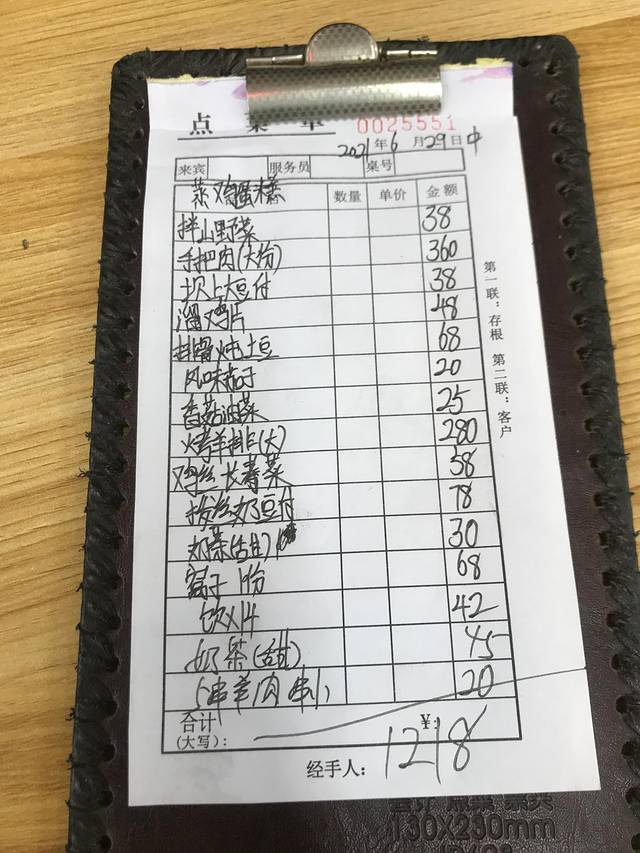 点菜单 0025551
2021年6月29日 中
来宾 服务员 桌号
蒸鸡蛋糕 数量 单价 金额
拌山野菜 38
手把肉(大份) 360
坝上大豆付 38
溜鸡片 48
排骨炖土豆 68
风味茄子 20
香菇油菜 25
烤羊排(大) 280
鸡丝长寿菜 58
拔丝奶豆付 78
奶茶(甜) 30
1份 68
饮X14 42
奶茶(甜) 45
5串羊肉串 20
合计
(大写): ¥: 1218
经手人:
第一联:存根 第二联:客户
130X230mm